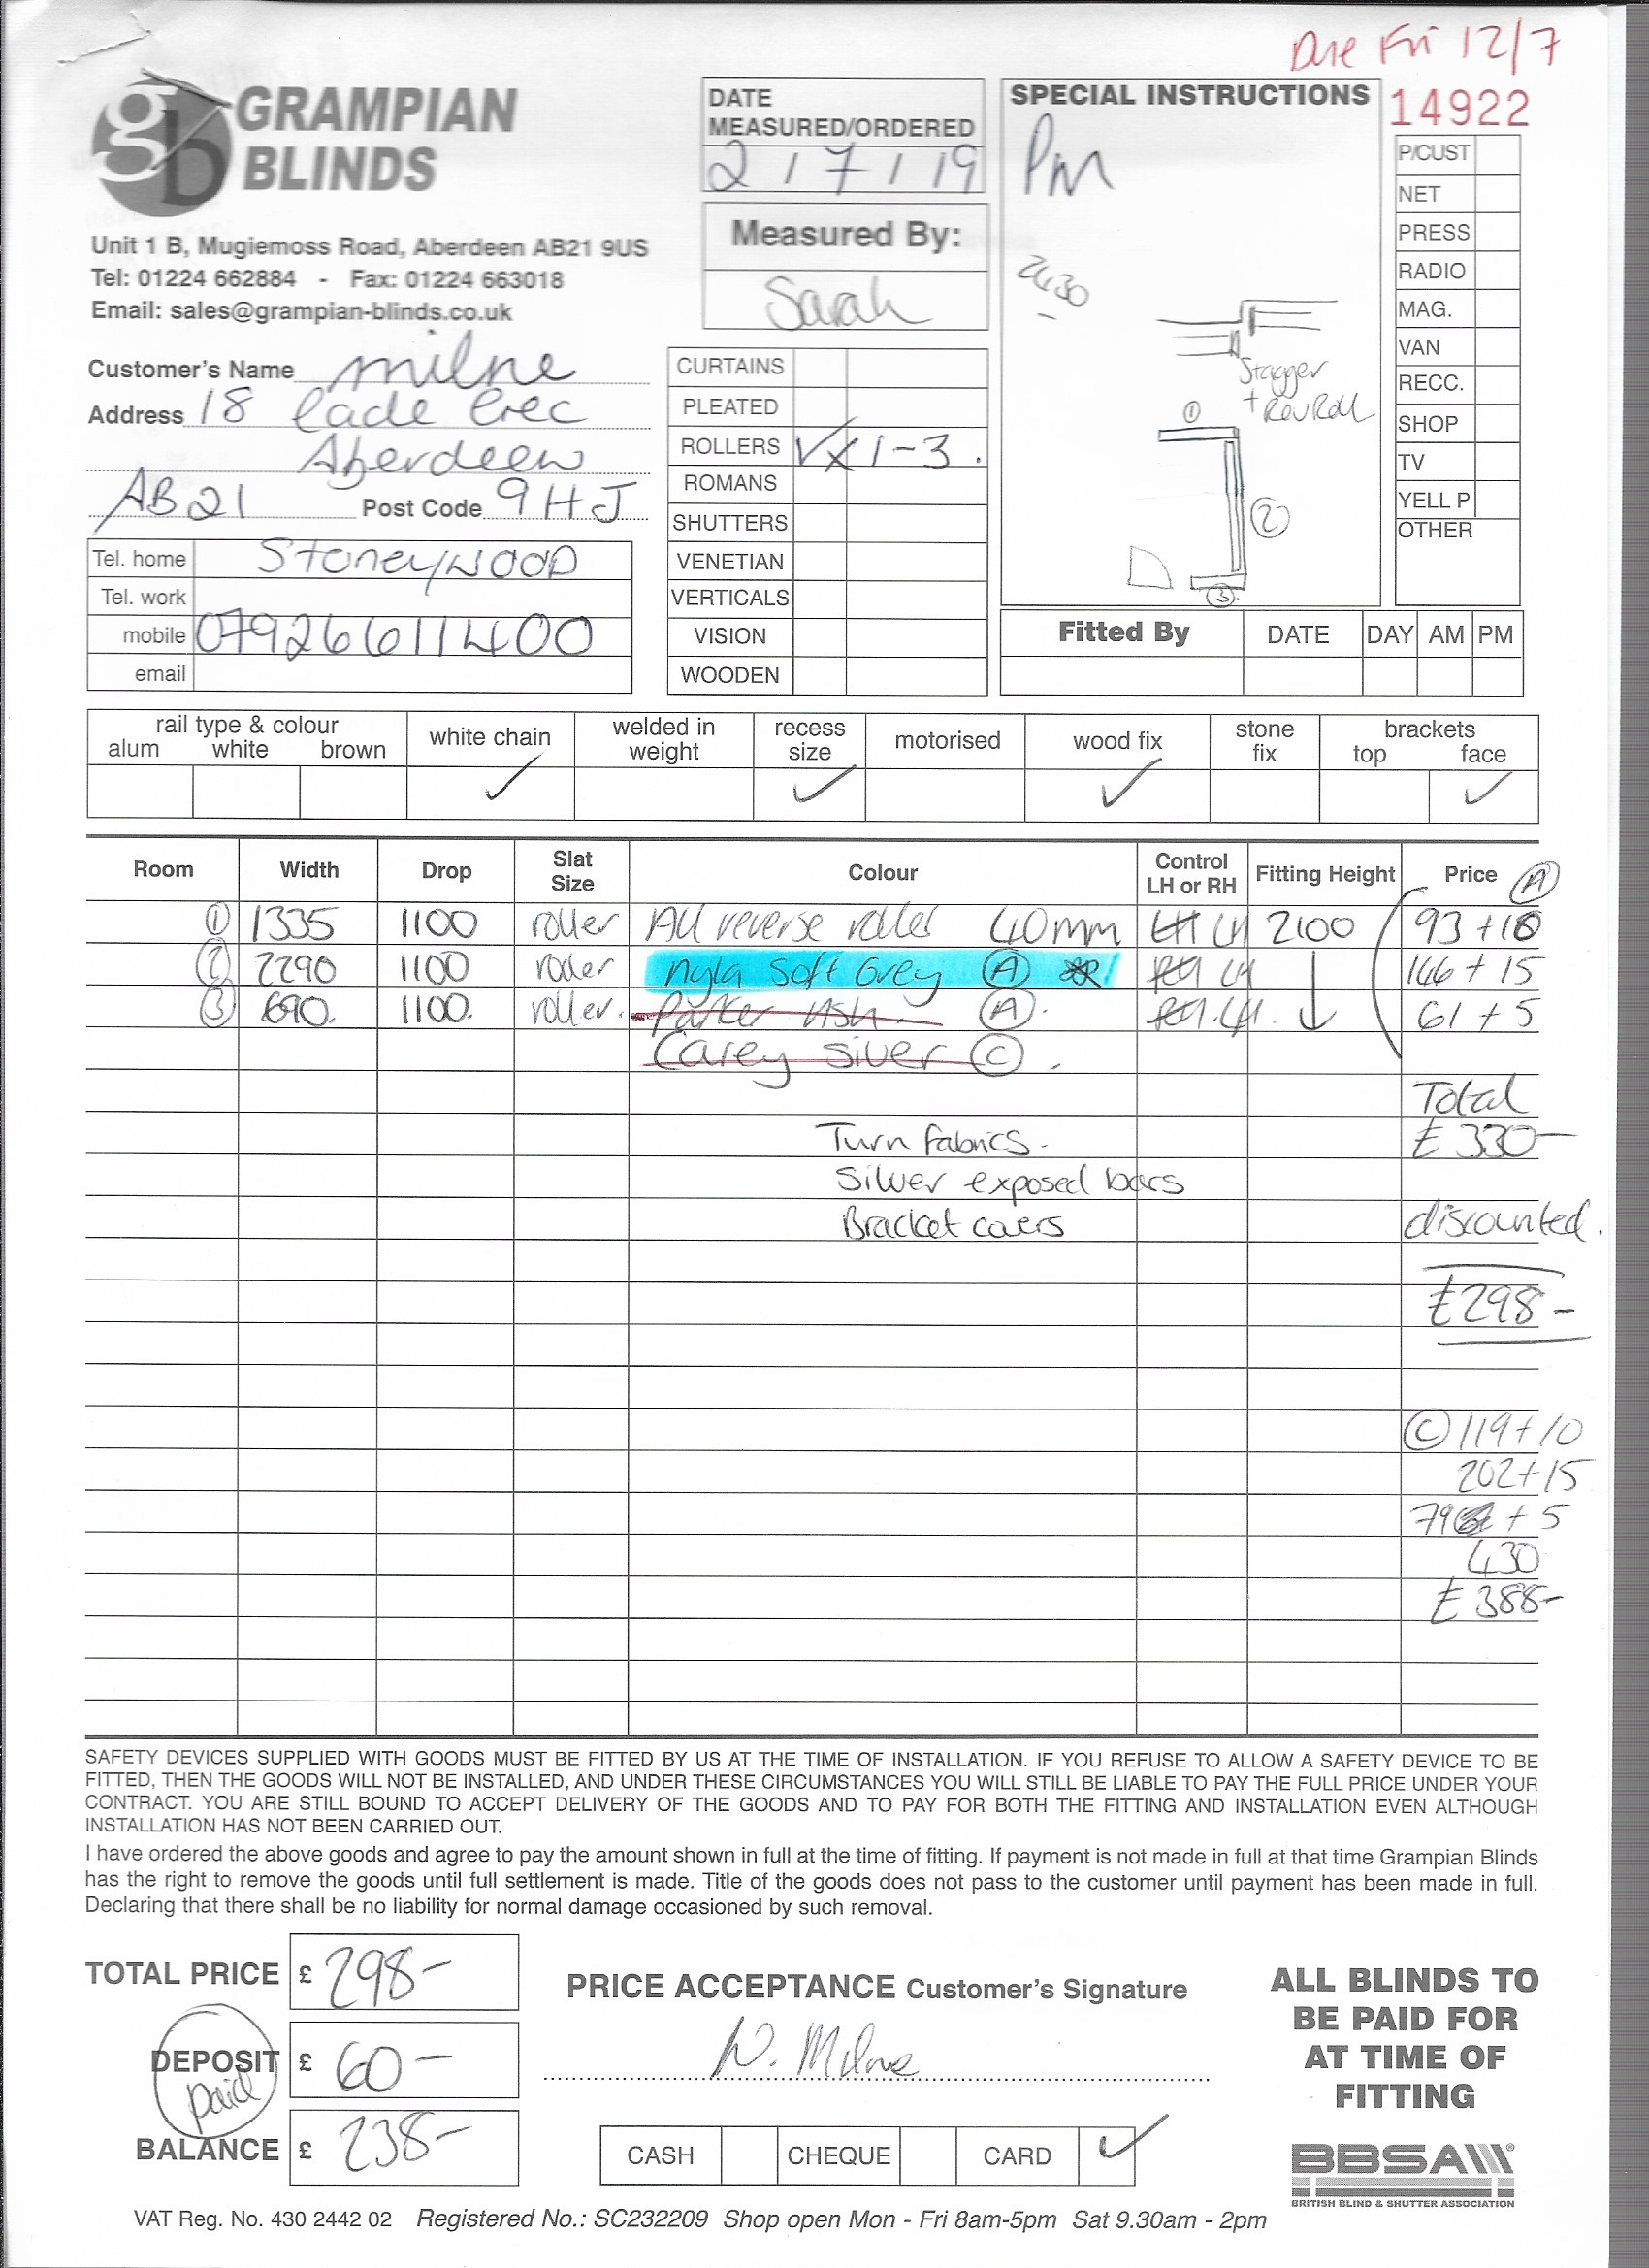 Due Fri 12/7
GRAMPIAN
BLINDS
Unit 1 B, Mugiemoss Road, Aberdeen AB21 9US
Tel: 01224 662884 - Fax: 01224 663018
Email: sales@grampian-blinds.co.uk
DATE
MEASURED/ORDERED
2 / 7 / 19
Measured By:
Sarah
SPECIAL INSTRUCTIONS
PM
2430
Stagger
+ Rev Roll
1
2
3
14922
P/CUST
NET
PRESS
RADIO
MAG.
VAN
RECC.
SHOP
TV
YELL P
OTHER
Customer's Name milne
Address 18 Cres
Aberdeen
AB21 Post Code 9HJ
Tel. home Stoneywood
Tel. work
mobile 07926611400
email
CURTAINS
PLEATED
ROLLERS 1-3.
ROMANS
SHUTTERS
VENETIAN
VERTICALS
VISION
WOODEN
Fitted By DATE DAY AM PM
rail type & colour
alum white brown
white chain
welded in
weight
recess
size
motorised
wood fix
stone
fix
brackets
top face
Room Width Drop Slat Size Colour Control LH or RH Fitting Height Price A
1 1335 1100 roller All reverse roller 40mm LH LH 2100 93 + 10
2 2290 1100 roller Nyla Soft Grey A RH LH 146 + 15
3 690. 1100. roller. Parker Ash. A. RH. LH. 61 + 5
Carey Silver C.
Total
Turn fabrics. £330-
Silver exposed bars
Bracket covers discounted.
£298-
C 119 + 10
202 + 15
79 + 5
430
£388-
SAFETY DEVICES SUPPLIED WITH GOODS MUST BE FITTED BY US AT THE TIME OF INSTALLATION. IF YOU REFUSE TO ALLOW A SAFETY DEVICE TO BE
FITTED, THEN THE GOODS WILL NOT BE INSTALLED, AND UNDER THESE CIRCUMSTANCES YOU WILL STILL BE LIABLE TO PAY THE FULL PRICE UNDER YOUR
CONTRACT. YOU ARE STILL BOUND TO ACCEPT DELIVERY OF THE GOODS AND TO PAY FOR BOTH THE FITTING AND INSTALLATION EVEN ALTHOUGH
INSTALLATION HAS NOT BEEN CARRIED OUT.
I have ordered the above goods and agree to pay the amount shown in full at the time of fitting. If payment is not made in full at that time Grampian Blinds
has the right to remove the goods until full settlement is made. Title of the goods does not pass to the customer until payment has been made in full.
Declaring that there shall be no liability for normal damage occasioned by such removal.
TOTAL PRICE £ 298-
DEPOSIT £ 60-
paid
BALANCE £ 238-
PRICE ACCEPTANCE Customer's Signature
N. Milne
CASH CHEQUE CARD
ALL BLINDS TO
BE PAID FOR
AT TIME OF
FITTING
BBSA
BRITISH BLIND & SHUTTER ASSOCIATION
VAT Reg. No. 430 2442 02 Registered No.: SC232209 Shop open Mon - Fri 8am-5pm Sat 9.30am - 2pm